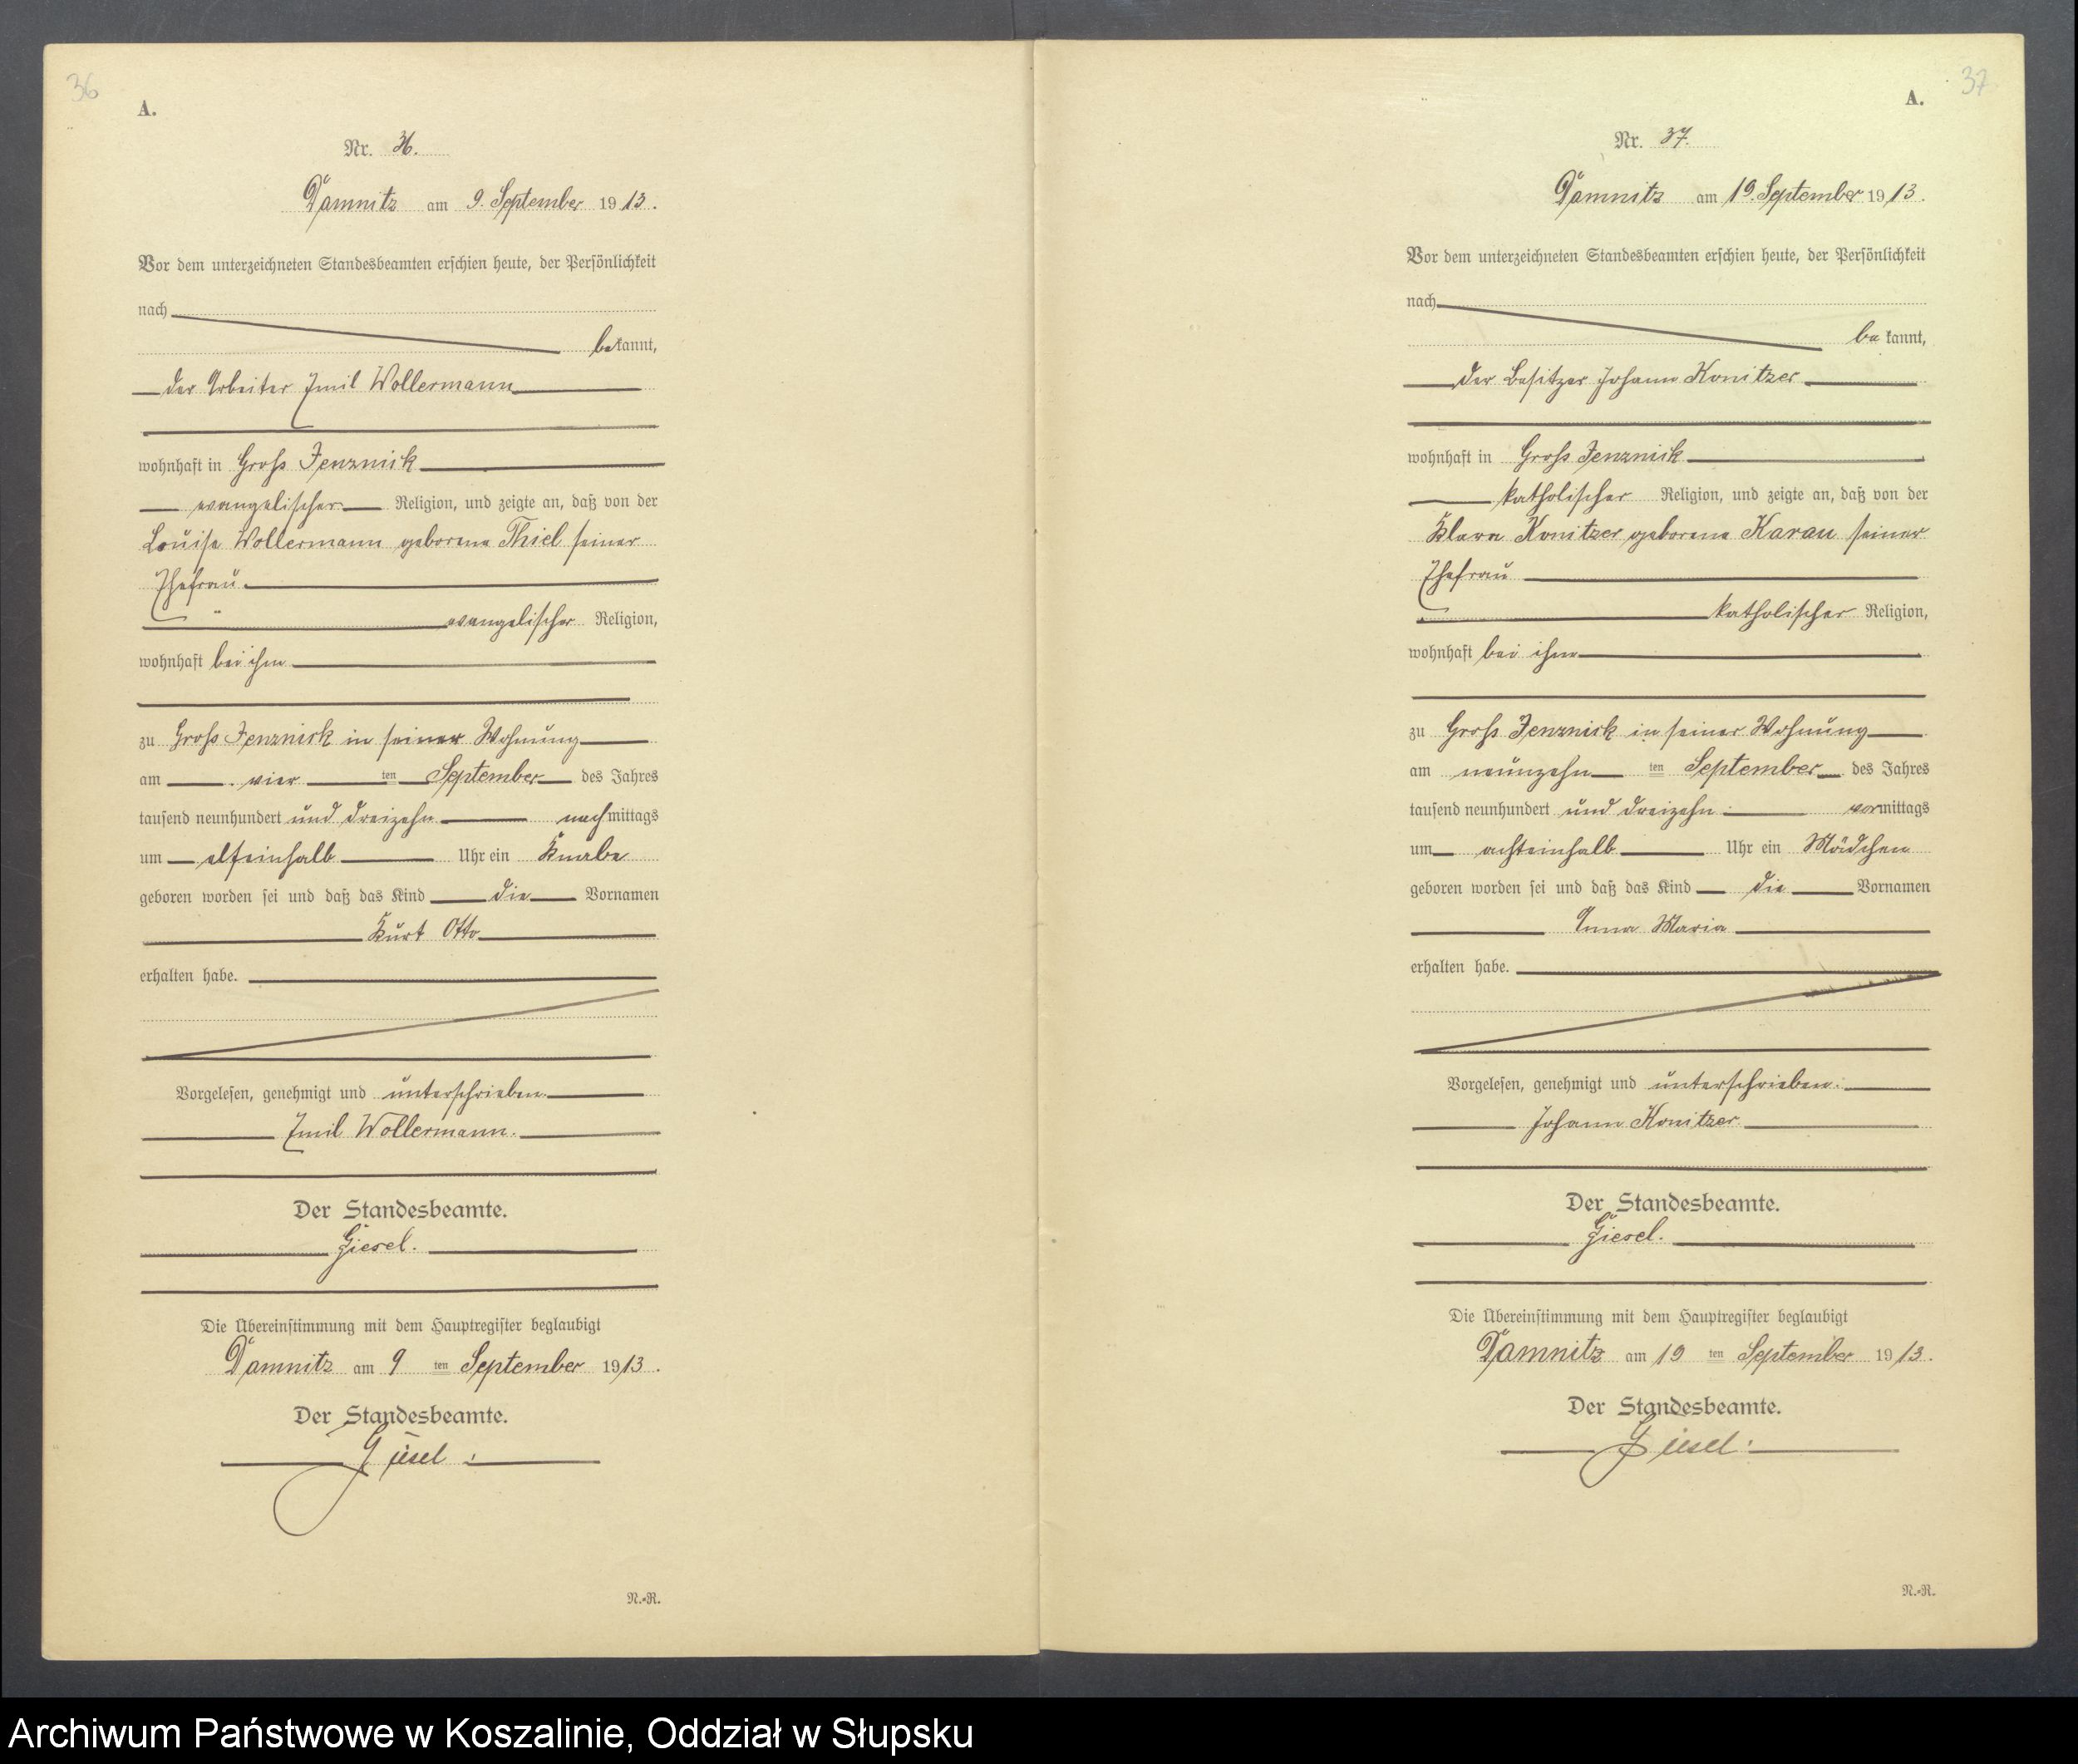 36
A.
Nr. 36.
Damnitz am 9. September 1913.
Vor dem unterzeichneten Standesbeamten erschien heute, der Persönlichkeit
nach
bekannt,
der Arbeiter Emil Wollermann
wohnhaft in Groß Jenznick
evangelischer Religion, und zeigte an, daß von der
Louise Wollermann geborene Thiel seiner
Ehefrau
evangelischer Religion,
wohnhaft bei ihm
zu Groß Jenznick in seiner Wohnung
am vier ten September des Jahres
tausend neunhundert und dreizehn nachmittags
um elfeinhalb Uhr ein Knabe
geboren worden sei und daß das Kind die Vornamen
Kurt Otto
erhalten habe.
Vorgelesen, genehmigt und unterschrieben.
Emil Wollermann.
Der Standesbeamte.
Giesel.
Die Übereinstimmung mit dem Hauptregister beglaubigt
Damnitz am 9 ten September 1913.
Der Standesbeamte.
Giesel.
N.-R.
37
A.
Nr. 37.
Damnitz am 19. September 1913.
Vor dem unterzeichneten Standesbeamten erschien heute, der Persönlichkeit
nach
bekannt,
der Besitzer Johann Konitzer
wohnhaft in Groß Jenznick
katholischer Religion, und zeigte an, daß von der
Klara Konitzer geborene Karau seiner
Ehefrau
katholischer Religion,
wohnhaft bei ihm
zu Groß Jenznick in seiner Wohnung
am neunzehn ten September des Jahres
tausend neunhundert und dreizehn vormittags
um achteinhalb Uhr ein Mädchen
geboren worden sei und daß das Kind die Vornamen
Anna Maria
erhalten habe.
Vorgelesen, genehmigt und unterschrieben.
Johann Konitzer.
Der Standesbeamte.
Giesel.
Die Übereinstimmung mit dem Hauptregister beglaubigt
Damnitz am 19 ten September 1913.
Der Standesbeamte.
Giesel.
N.-R.
Archiwum Państwowe w Koszalinie, Oddział w Słupsku